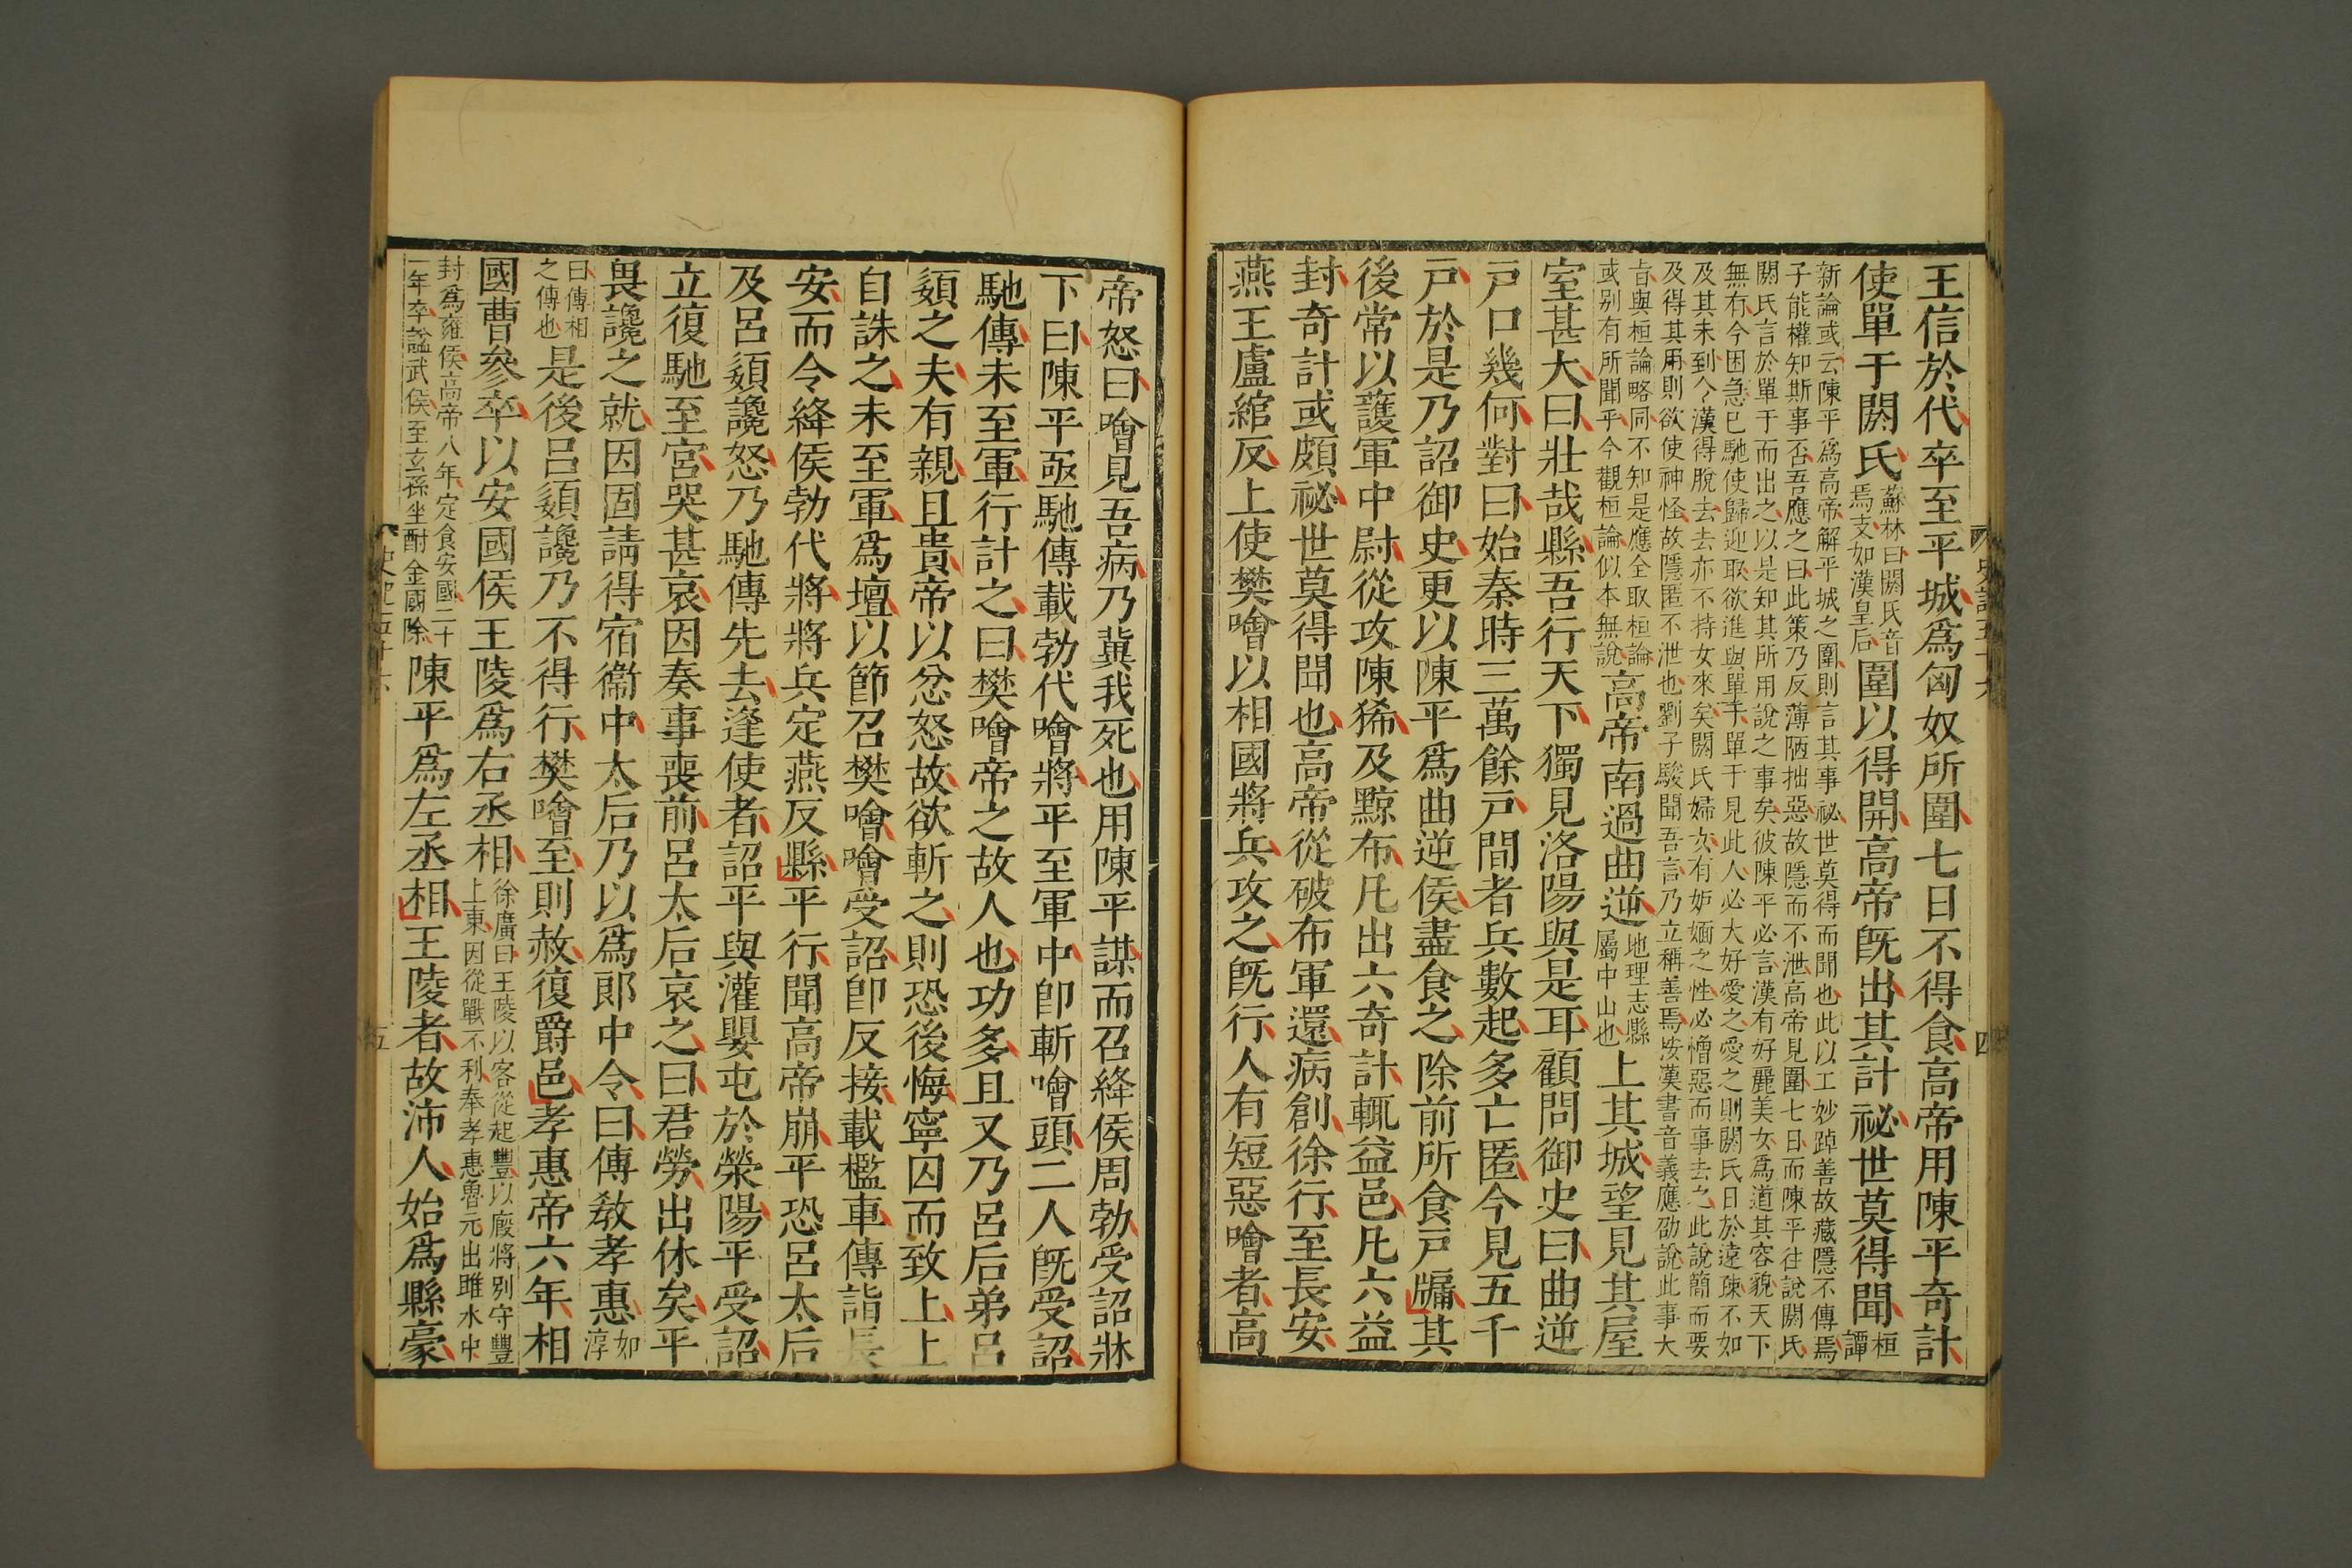 王信於代卒至平城爲匈奴所圍七日不得食高帝用陳平奇計
使單于閼氏蘇林曰閼氏音焉支如漢皇后圍以得開高帝旣出其計祕世莫得聞桓譚
新論或云陳平爲高帝解平城之圍則言其事祕世莫得而聞也此以工妙踔善故藏隱不傳焉
子能權知斯事否吾應之曰此策乃反薄陋拙惡故隱而不泄高帝見圍七日而陳平往說閼氏
閼氏言於單于而出之以是知其所用說之事矣彼陳平必言漢有好麗美女爲道其容貌天下
無有今困急已馳使歸迎取欲進與單于單于見此人必大好愛之愛之則閼氏日於遠踈不如
及其未到令漢得脫去去亦不持女來矣閼氏婦女有妒媔之性必憎惡而事去之此說簡而要
及得其用則欲使神怪故隱匿不泄也劉子駿聞吾言乃立稱善焉按漢書音義應劭說此事大
旨與桓論略同不知是應全取桓論
或别有所聞乎今觀桓論似本無說高帝南過曲逆地理志縣屬中山也上其城望見其屋
室甚大曰壯哉縣吾行天下獨見洛陽與是耳顧問御史曰曲逆
戸口幾何對曰始秦時三萬餘戸間者兵數起多亡匿今見五千
戸於是乃詔御史更以陳平爲曲逆侯盡食之除前所食戸牖其
後常以護軍中尉從攻陳豨及黥布凡出六奇計輒益邑凡六益
封奇計或頗祕世莫得聞也高帝從破布軍還病創徐行至長安
燕王盧綰反上使樊噲以相國將兵攻之旣行人有短惡噲者高
帝怒曰噲見吾病乃冀我死也用陳平謀而召絳侯周勃受詔牀
下曰陳平亟馳傳載勃代噲將平至軍中卽斬噲頭二人旣受詔
馳傳未至軍行計之曰樊噲帝之故人也功多且又乃呂后弟呂
嬃之夫有親且貴帝以忿怒故欲斬之則恐後悔寧囚而致上上
自誅之未至軍爲壇以節召樊噲噲受詔卽反接載檻車傳詣長
安而令絳侯勃代將將兵定燕反縣平行聞高帝崩平恐呂太后
及呂嬃讒怒乃馳傳先去逢使者詔平與灌嬰屯於滎陽平受詔
立復馳至宮哭甚哀因奏事喪前呂太后哀之曰君勞出休矣平
畏讒之就因固請得宿衞中太后乃以爲郎中令曰傳敎孝惠如淳
曰傳相之傳也是後呂嬃讒乃不得行樊噲至則赦復爵邑孝惠帝六年相
國曹參卒以安國侯王陵爲右丞相徐廣曰王陵以客從起豐以廄將别守豐上東因從戰不利奉孝惠魯元出睢水中
封爲雍侯高帝八年定食安國二十
一年卒謚武侯至玄孫坐酎金國除陳平爲左丞相王陵者故沛人始爲縣豪